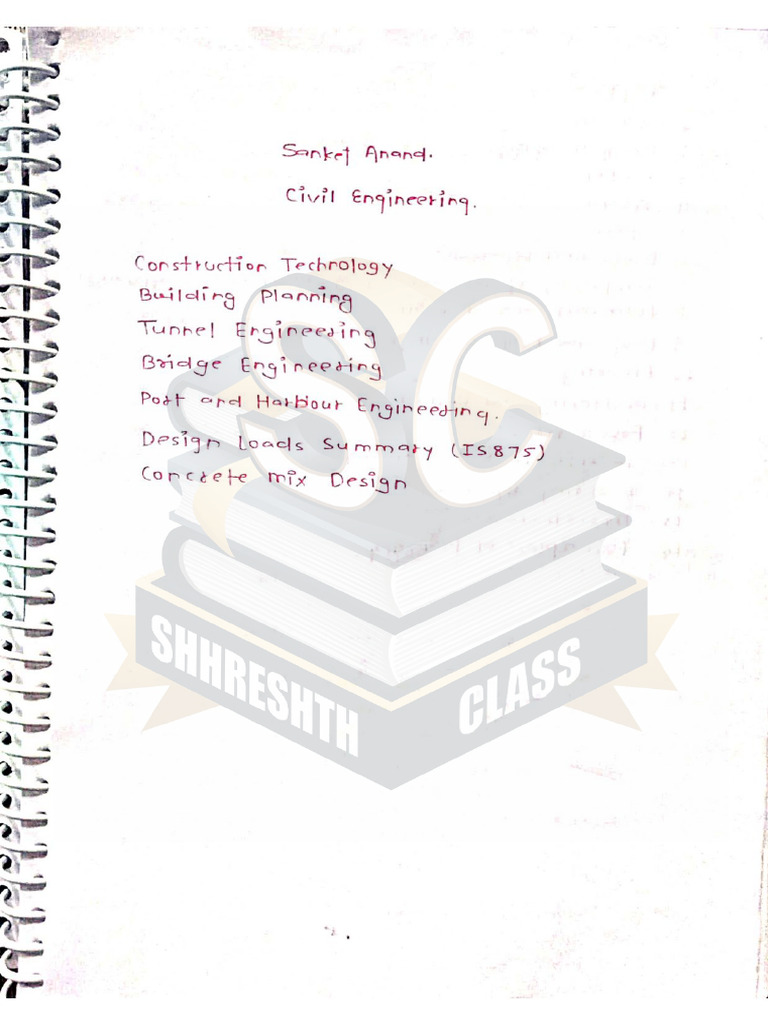 Sanket Anand.
Civil Engineering.
Construction Technology
Building Planning
Tunnel Engineering
Bridge Engineering
Port and Harbour Engineering.
Design Loads Summary (IS875)
Concrete mix Design
SC
SHHRESHTH CLASS